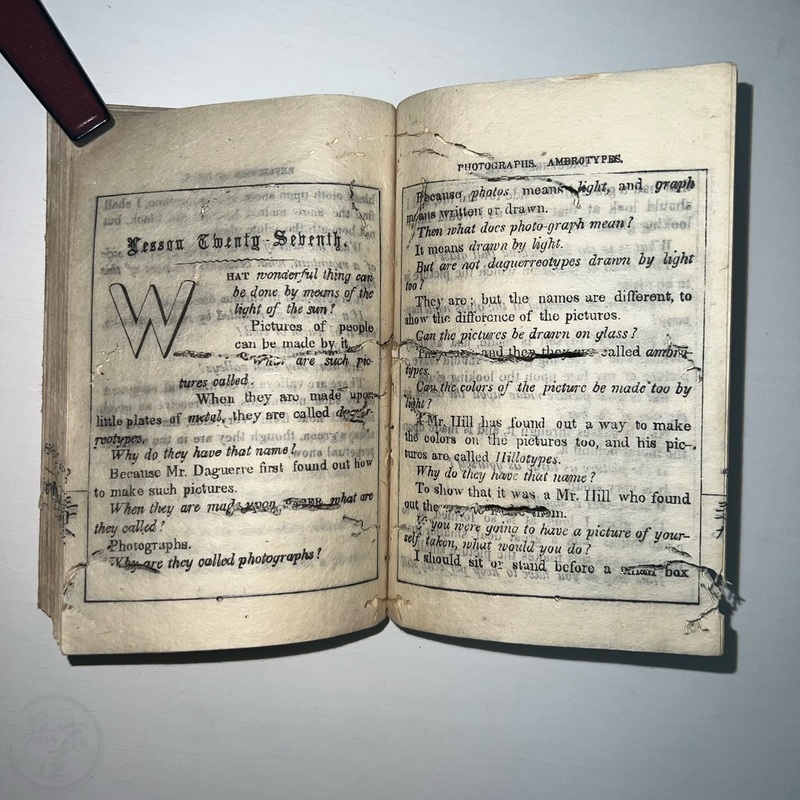 Lesson Twenty-Seventh.
WHAT wonderful thing can
be done by means of the
light of the sun?
Pictures of people
can be made by it.
What are such pic-
tures called.
When they are made upon
little plates of metal, they are called
rootypes.
Why do they have that name?
Because Mr. Daguerre first found out how
to make such pictures.
When they are made upon PAPER what are
they called?
Photographs.
Why are they called photographs?
PHOTOGRAPHS. AMBROTYPES.
Because, photos means light, and graph
means written or drawn.
Then what does photo-graph mean?
It means drawn by light.
But are not daguerreotypes drawn by light
too?
They are; but the names are different, to
show the difference of the pictures.
Can the pictures be drawn on glass?
and then they are called ambro-
types.
Can the colors of the picture be made too by
light?
A Mr. Hill has found out a way to make
the colors on the pictures too, and his pic-
tures are called Hillotypes.
Why do they have that name?
To show that it was a Mr. Hill who found
out the
If you were going to have a picture of your-
self taken, what would you do?
I should sit or stand before a box